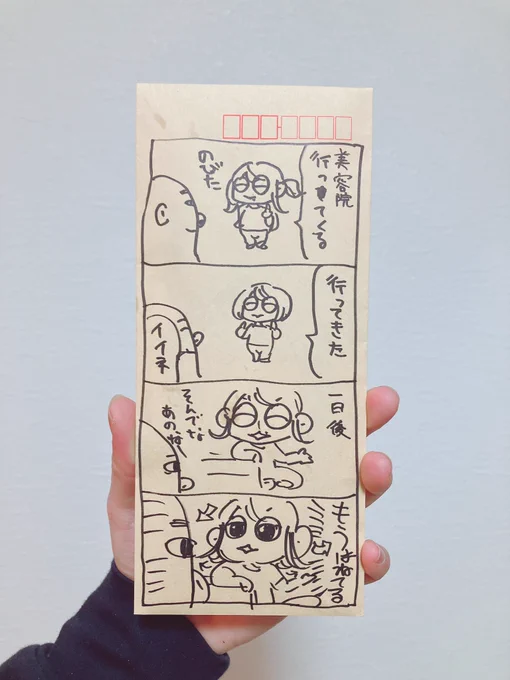 美容院
行ってくる
のびた
行ってきた
イイネ
一日後
そんでな
あのな
もうはねてる